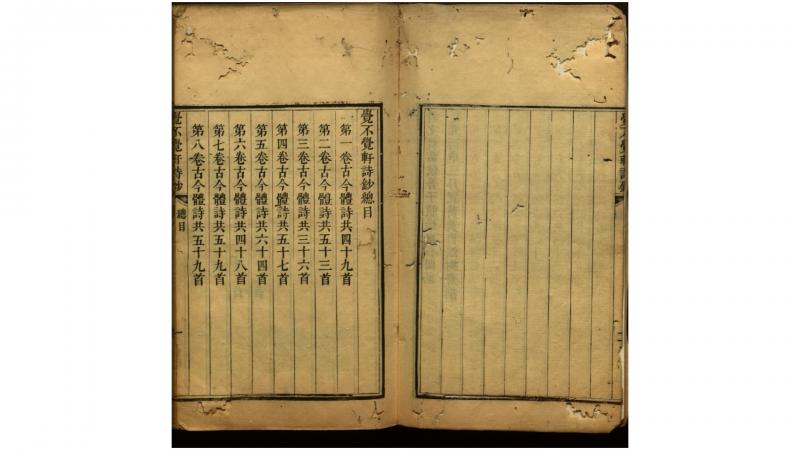 覺不覺軒詩鈔
覺不覺軒詩鈔總目
第一卷古今體詩共四十九首
第二卷古今體詩共五十三首
第三卷古今體詩共三十六首
第四卷古今體詩共五十七首
第五卷古今體詩共六十四首
第六卷古今體詩共四十八首
第七卷古今體詩共五十九首
第八卷古今體詩共五十九首
覺不覺軒詩鈔
總目